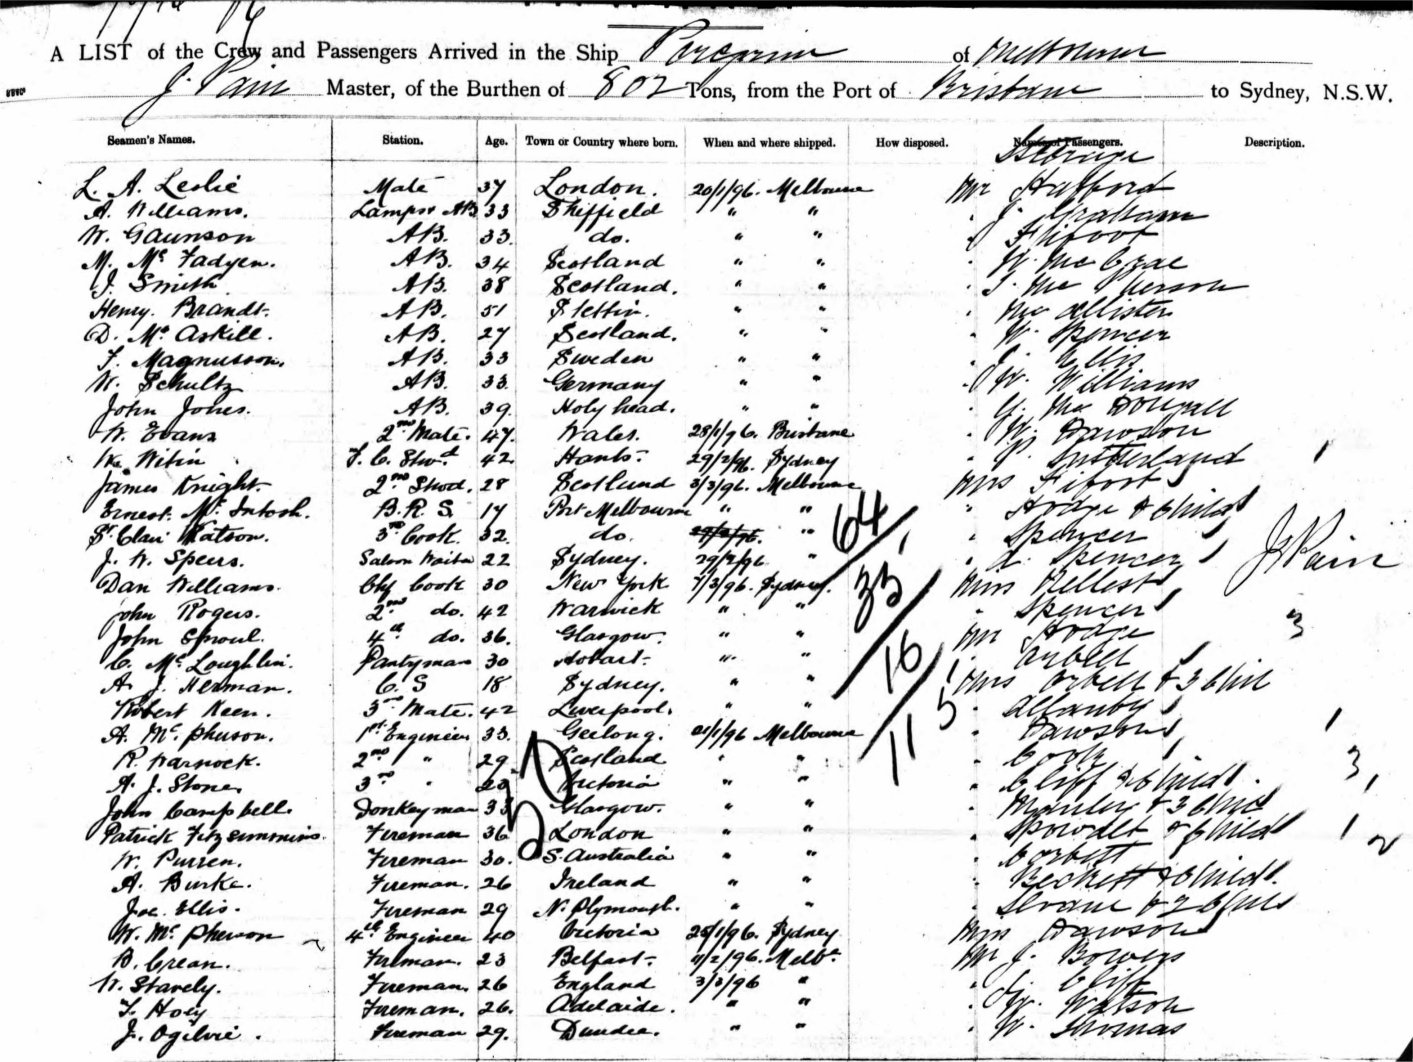 A LIST of the Crew and Passengers Arrived in the Ship Peregrine of Melbourne
J. Pain Master, of the Burthen of 802 Tons, from the Port of Brisbane to Sydney, N.S.W.
Seamen's Names. Station. Age. Town or Country where born. When and where shipped. How disposed. Names of Passengers. Description.
Steerage
L. A. Leslie Mate 37 London. 20/1/96. Melbourne Mr Stafford
A. Williams. Lamps & AB 33 Sheffield " " " J. Graham
W. Gaunson AB. 33. do. " " "
M. Mc Fadyen. AB. 34 Scotland " " " W Mc Crae
J. Smith AB. 38 Scotland. " " " J. Mc Pherson
Henry. Brandt. AB. 51 Stettin. " " " Mc Allister
D. Mc Askill. AB. 27 Scotland. " " " W. Spencer
F. Magnusson. AB. 33 Sweden " " " J. Ellis
W. Schultz AB. 33. Germany " " " W. Williams
John Jones. AB. 39. Holyhead. " " " G. Mc Dougall
W. Evans 2nd Mate. 47. Wales. 28/1/96. Brisbane " W. Dawson
Wm Witin F. C. Stwd 42 Hants. 29/2/96. Sydney " P. Sutherland 1
James Knight. 2nd Stwd. 28 Scotland 3/3/96. Melbourne Mrs Fifoot
Ernest. Mc Intosh. B.R.S 17 Port Melbourne " " " Hodge & Child
St Clair Watson. 3rd Cook 32. do. " " Spencer
J. W. Speers. Saloon Waiter 22 Sydney. 29/2/96 " " A. Spencer J Pain
Dan Williams. Chf Cook 30 New York 7/3/96. Sydney. Miss Kellest
John Rogers. 2nd do. 42 Warwick " " " Spencer
John Sproul. 4th do. 36. Glasgow. " " Mr Hodge 3
C. McLoughlin. Pantryman 30 Hobart. " " "
A. J. Herman. C. S 18 Sydney. " " Mrs & 3 Chil
Robert Keen. 3rd Mate. 42 Liverpool. " " " Allanby
A. McPherson. 1st Engineer 33. Geelong. 21/1/96 Melbourne " Dawson 1
R. Warnock. 2nd " 29. Scotland " " " Cook 3
A. J. Stone 3rd " 23 Victoria " " " Cliff & Child 1
John Campbell. Donkeyman 33 Glasgow. " " " & 3 Chil
Patrick Fitzsimmins. Fireman 36 London " " " & Child 1 2
W. Purren. Fireman 30. S. Australia " " " Corbett
A. Burke. Fireman. 26 Ireland " " " Beckett & Child
Joe. Ellis. Fireman 29 N. Plymouth. " " " Sloane & 2 Chil
W. McPherson 4th Engineer 40 Victoria 25/1/96. Sydney Miss Dawson
B. Crean. Fireman. 23 Belfast. 11/2/96. Melbe Mr J. Bowers
W. Stavely. Fireman. 26 England 3/3/96 " " Cliff
F. Hoey Fireman. 26. Adelaide. " " " W. Watson
J. Ogilvie. Fireman 29. Dundee. " " " W. Thomas
64
33
16
11 5